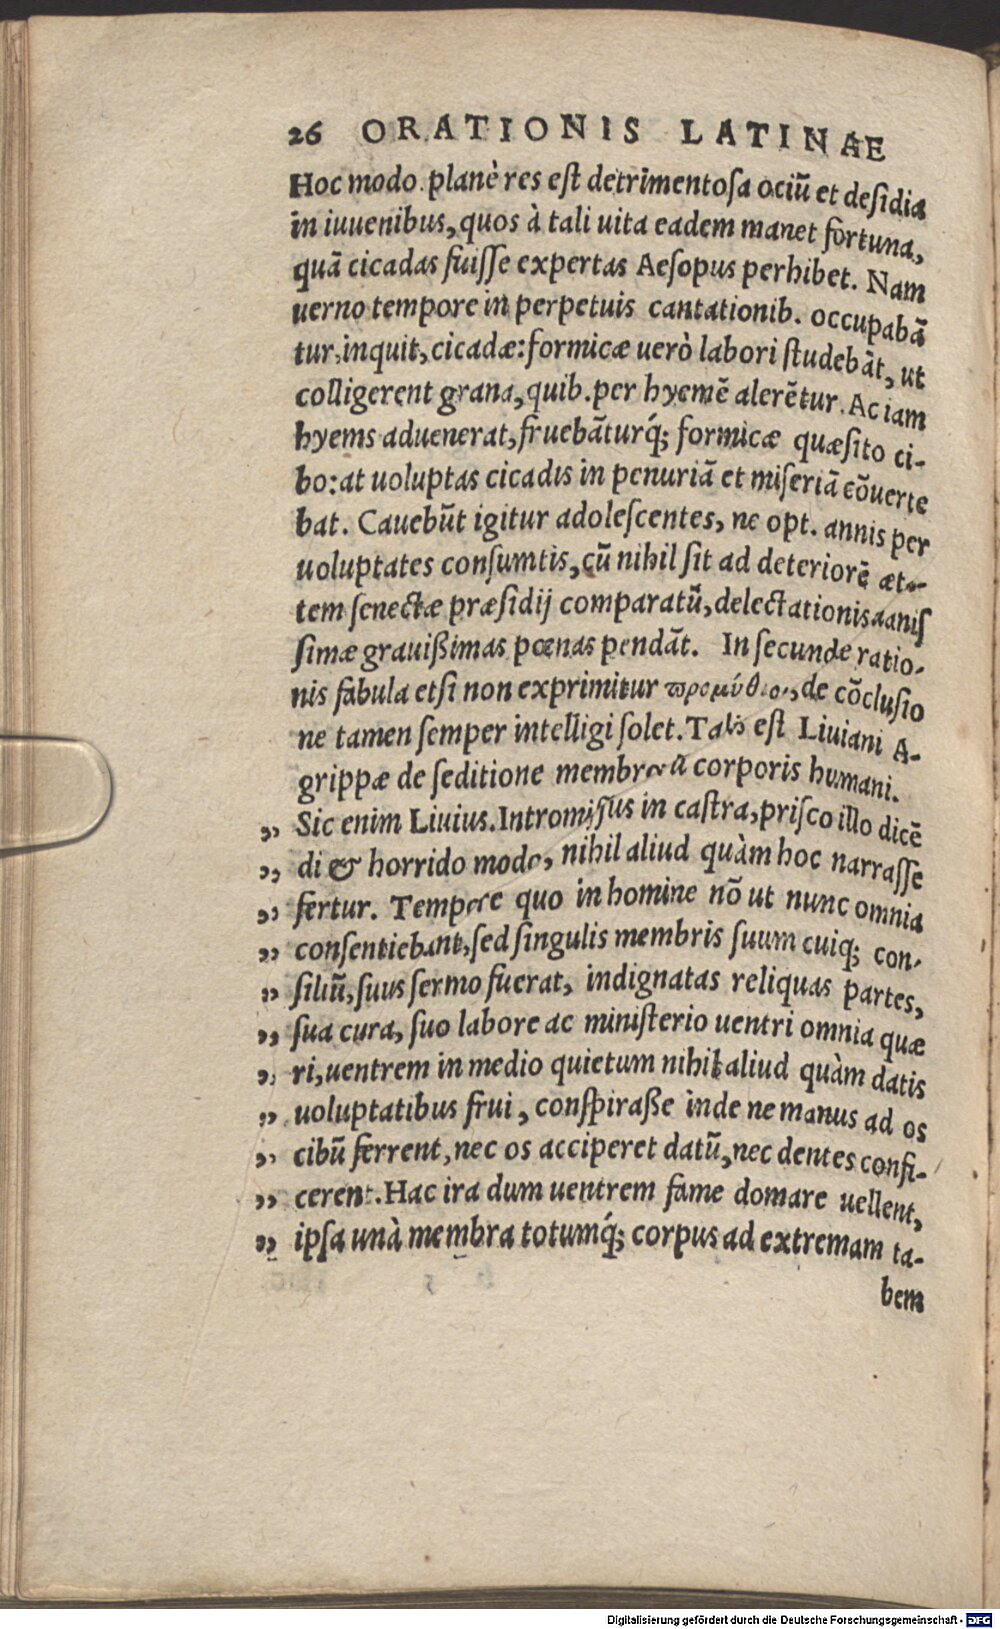 26 ORATIONIS LATINAE
Hoc modo planè res est detrimentosa ociū et desidia
in iuuenibus, quos à tali uita eadem manet fortuna,
quā cicadas fuisse expertas Aesopus perhibet. Nam
uerno tempore in perpetuis cantationib. occupabā
tur, inquit, cicadæ: formicæ uerò labori studebāt, ut
colligerent grana, quib. per hyemē alerētur. Ac iam
hyems aduenerat, fruebāturq́; formicæ quæsito ci-
bo: at uoluptas cicadis in penuriā et miseriā cōuerte
bat. Cauebūt igitur adolescentes, ne opt. annis per
uoluptates consumtis, cū nihil sit ad deteriorē æta-
tem senectæ præsidij comparatū, delectationis
simæ grauißimas pœnas pendāt. In secunde ratio-
nis fabula etsi non exprimitur de cōclusio
ne tamen semper intelligi solet. Talis est Liuiani A-
grippæ de seditione membrorū corporis humani.
,, Sic enim Liuius. Intromissus in castra, prisco illo dicē
,, di & horrido modo, nihil aliud quàm hoc narrasse
,, fertur. Tempore quo in homine nō ut nunc omnia
,, consentiebant, sed singulis membris suum cuiq; con-
,, siliū, suus sermo fuerat, indignatas reliquas partes,
,, sua cura, suo labore ac ministerio uentri omnia quæ
,, ri, uentrem in medio quietum nihil aliud quàm datis
,, uoluptatibus frui, conspiraße inde ne manus ad os
,, cibū ferrent, nec os acciperet datū, nec dentes confi-
,, cerent. Hac ira dum uentrem fame domare uellent,
,, ipsa unà membra totumq́; corpus ad extremam ta-
bem
Digitalisierung gefördert durch die Deutsche Forschungsgemeinschaft - DFG